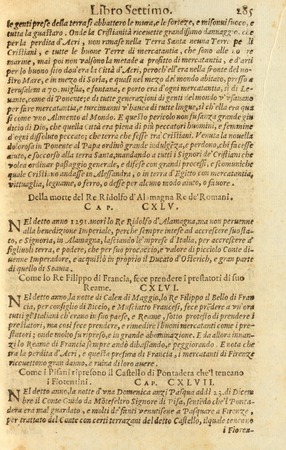 Libro Settimo. 285
le genti prese della terra si abbattero le mura, e le fortezze, e misonui fuoco, e
tutta la guastaro. Onde la Christianità riceuette grandissimo dammaggio, che
per la perdita d'Acri, non rimase nella Terra Santa neuna Terra per li
Cristiani, e tutte le buone Terre di mercatantia, che sono alle
marine, mai poi non valsono la metade a profitto di mercatantia, e d'arti
per lo buono sito dou'era la Città d'Acri, peroch'ell'era nella fronte del nostro
Mare, e in mezzo di Soria, e quasi nel mezzo del mondo abitato, presso a
Ierusalem a 70. miglia, e fontana, e porto era d'ogni mercatantia, sì di Leuante,
come di Ponente; e di tutte generazioni di genti del mondo v'vsauano
per fare mercatantie, e turcimanni v'haueua di tutte lingue, sì ch'ella era quasi
come vno Alimento al Mondo. E questo pericolo non fu senza grande giudicio
di Dio, che quella Città era piena di più peccatori huomini, e femmine
d'ogni dissoluto peccato; che terra che fosse tra' Cristiani. Venuta la nouella
dolorosa in Ponente al Papa ordinò grande indulgenza, e perdono, chi facesse
aiuto, e soccorso alla terra Santa, mandando a tutti i Signori de' Cristiani che
volea ordinar passaggio generale, e difese con grandi processi, e scomuniche
quale Cristiano andasse in Alessandria, o in terra d'Egitto con mercatantia,
vittuaglia, legname, o ferro, o desse per alcuno modo aiuto, o fauore.
Della morte del Re Ridolfo d'Alamagna Re de' Romani.
CAP. CXLV.
Nel detto anno 1291. morì lo Re Ridolfo d'Alamagna, ma non peruenne
alla benedizione Imperiale, perche sempre intese ad accrescere suo stato,
e Signoria, in Alamagna, lasciando le imprese d'Italia, per accrescere a'
figliuoli terra, e podere, che per suo procaccio, e valore di piccolo Conte diuenne
Imperadore, e acquistò in proprio il Ducato d'Osterich, e gran parte
di quello di Soauia.
Come lo Re Filippo di Francia, fece prendere i prestatori di suo
Reame. CXLVI.
Nel detto anno, la notte di Calen di Maggio, lo Re Filippo il Bello di Francia,
per consiglio di Biccio, e Musciatto Francesi, fece prēdere a vn'ora
tutti gl'Italiani ch'erano in suo paese, e Reame, sotto protesto di prendere i
prestatori, ma così fece prendere, e rimedire i buoni mercatanti come i prestatori;
onde molto fu ripreso, e in grande abominazione. E da allora innanzi
lo Reame di Francia sempre andò dibassando, e peggiorando. E nota che
tra la perdita d'Acri, e questa presura di Francia, i mercatanti di Firenze
riceuettono gran danno, e ruina di loro auere.
Come i Pisani ripresono il Castello di Pontadera che'l teneano
i Fiorentini. CAP. CXLVII.
Nel detto anno, la notte d'vna Domenica anzi Pasqua addì 23. di Dicembre
il Conte Guido da Mõtefeltro Signore di Pisa, sentēdo che'l Pontadera
era mal guardato, e molti de' fanti venutisene a Pasquare a Firenze,
per trattato del Conte con certi terrazzani del detto Castello, il quale teneano
i Fioren-